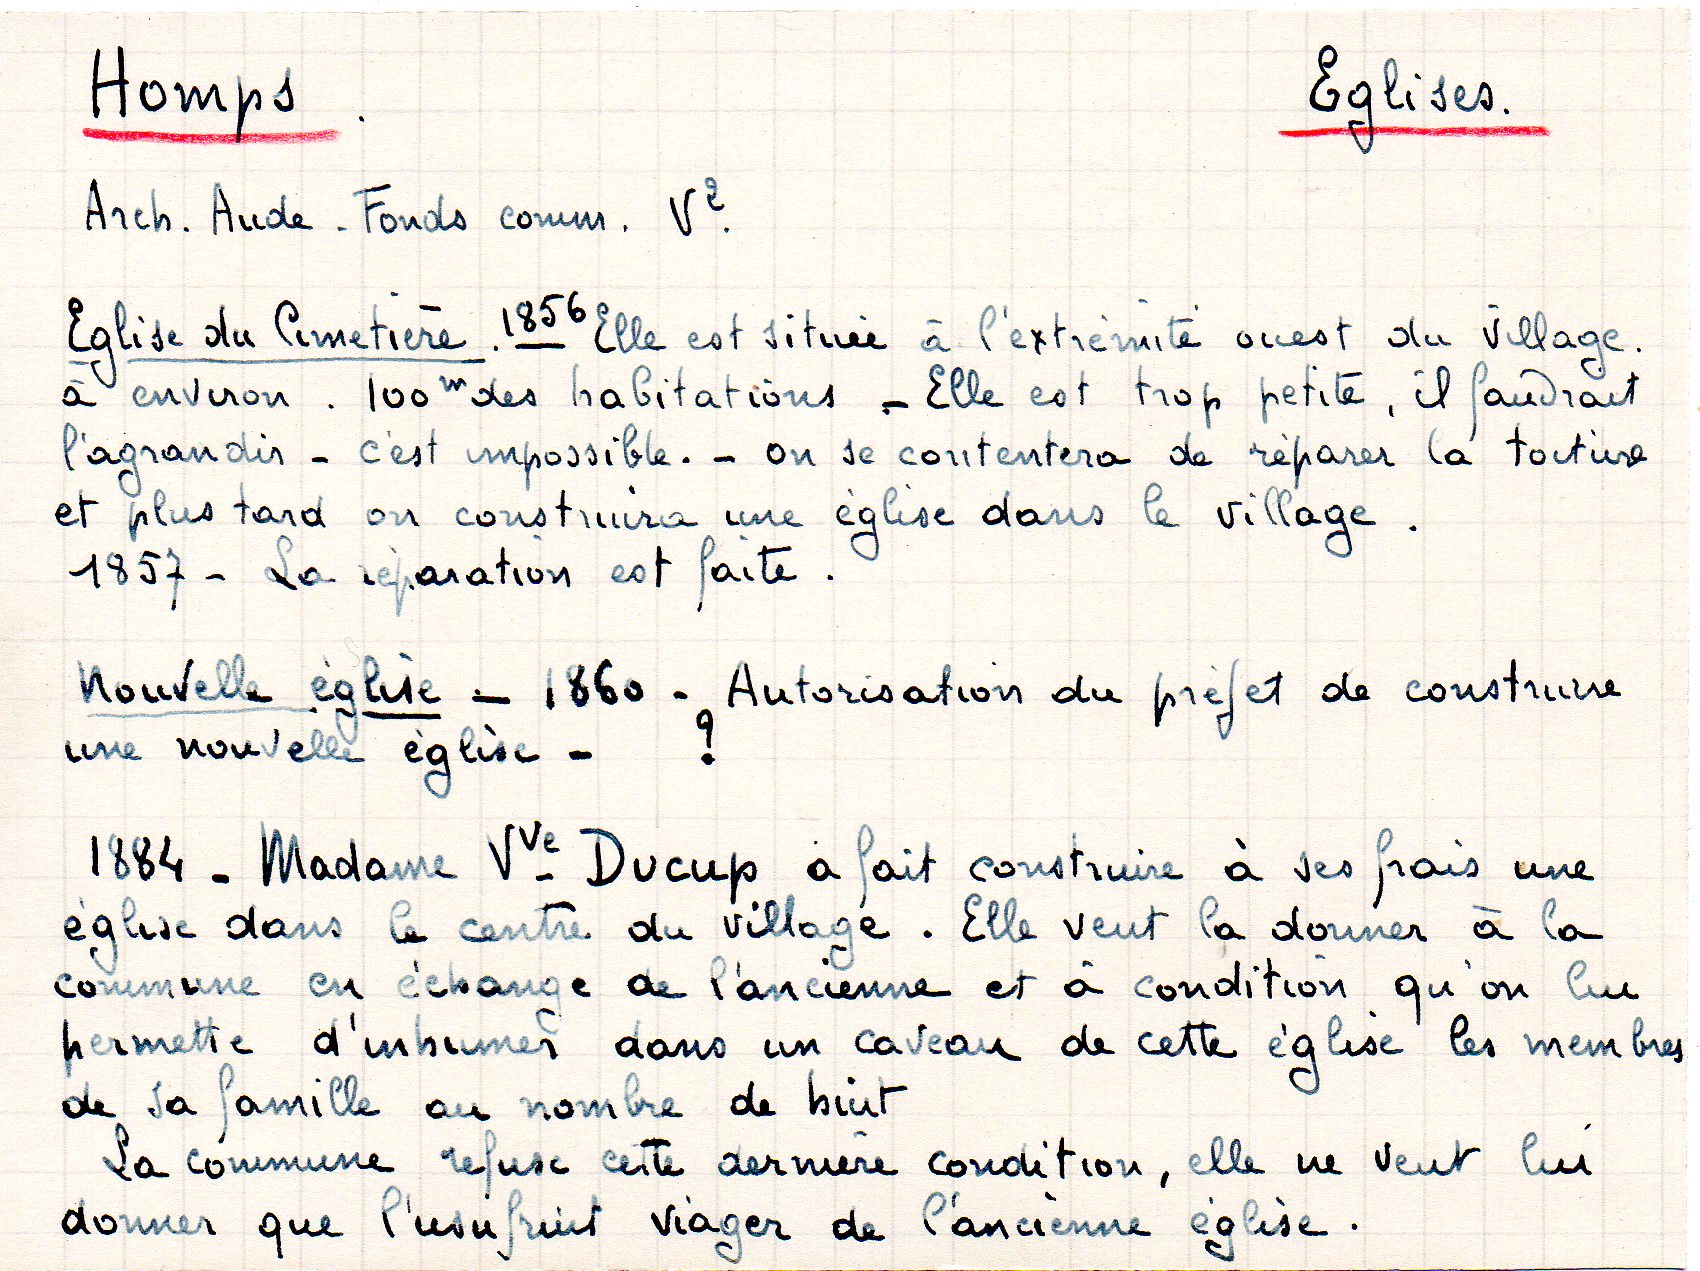 Homps. Eglises.
Arch. Aude. Fonds comm. V².
Eglise du Cimetière. 1856 Elle est située à l'extrémité ouest du village.
à environ. 100m des habitations - Elle est trop petite, il faudrait
l'agrandir - c'est impossible. - on se contentera de réparer la toiture
et plus tard on construira une église dans le village.
1857 - La réparation est faite.
Nouvelle église - 1860 - Autorisation du préfet de construire
une nouvelle église - ?
1884 - Madame Vve Ducup a fait construire à ses frais une
église dans le centre du village. Elle veut la donner à la
commune en échange de l'ancienne et à condition qu'on lui
permette d'inhumer dans un caveau de cette église les membres
de sa famille au nombre de huit
La commune refuse cette dernière condition, elle ne veut lui
donner que l'usufruit viager de l'ancienne église.